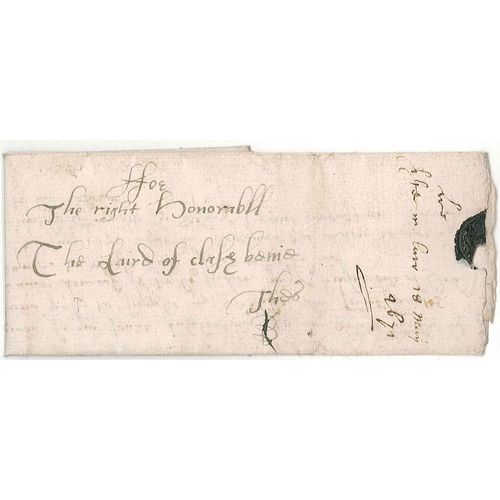 ffoe
The right honorabll
The Laird of clasg benie
Thes
18 May
1671